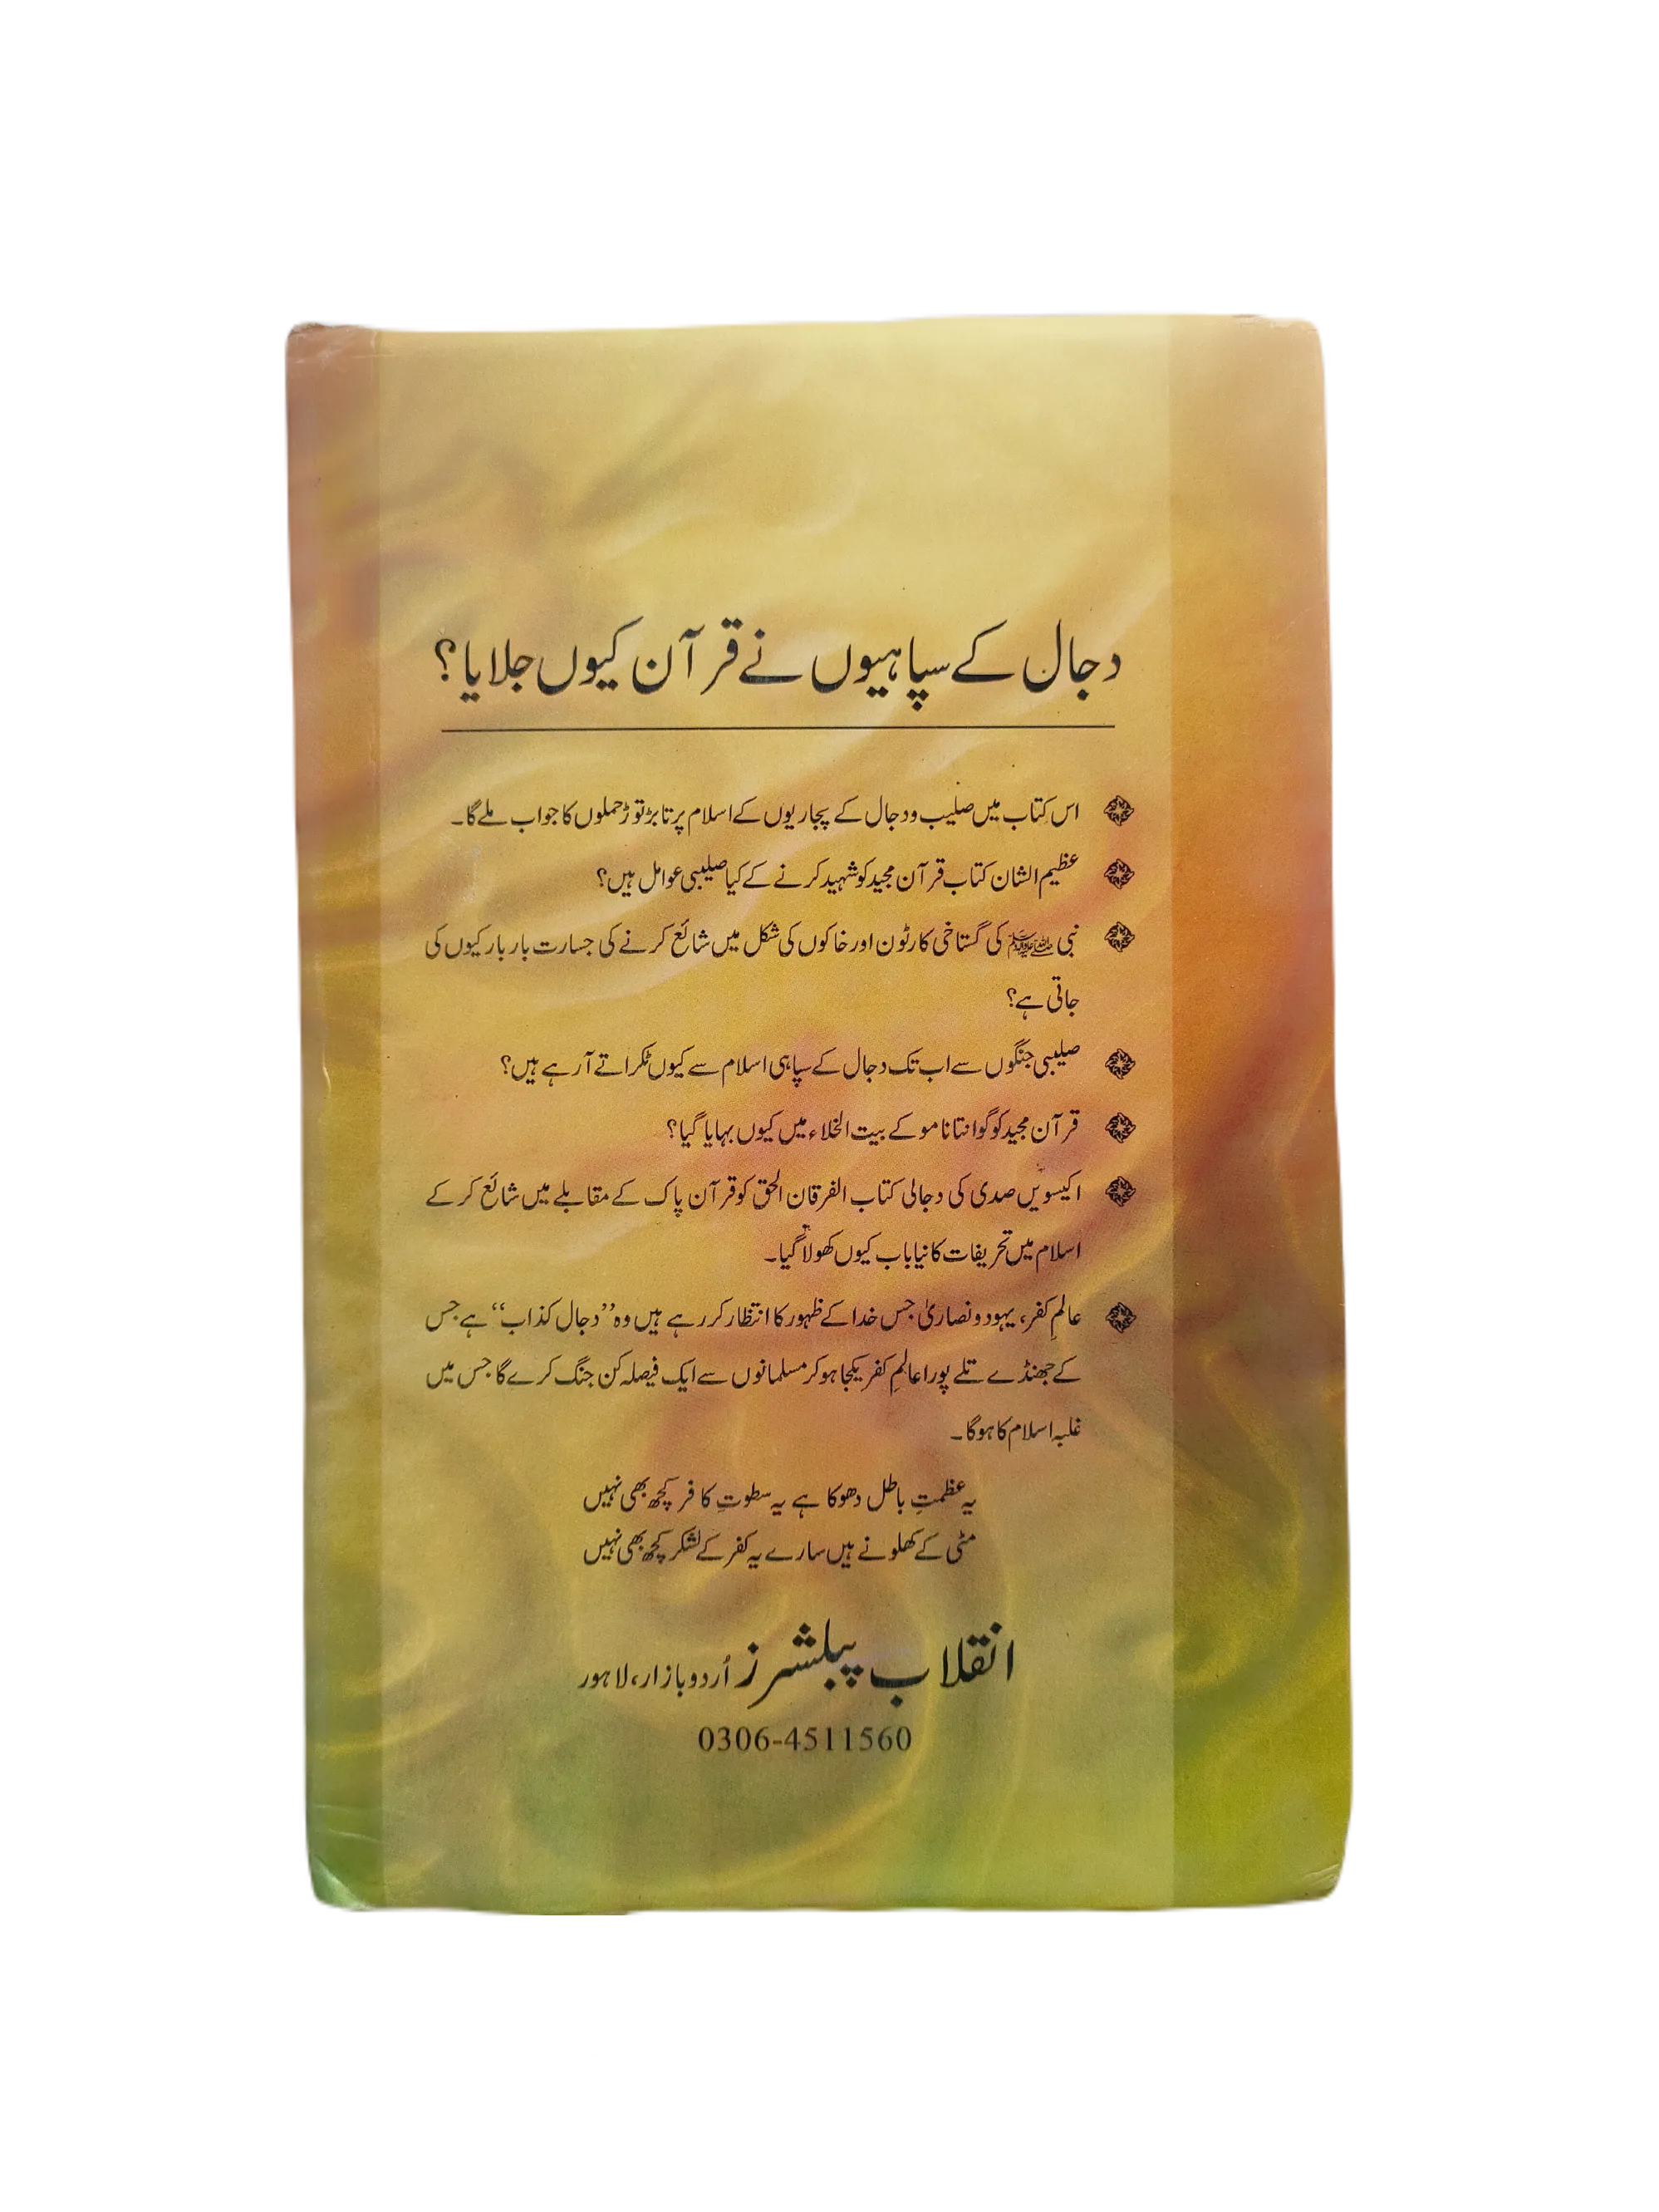 دجال کے سپاہیوں نے قرآن کیوں جلایا؟
اس کتاب میں صلیب و دجال کے پجاریوں کے اسلام پر تابڑ توڑ حملوں کا جواب ملے گا۔
عظیم الشان کتاب قرآن مجید کو شہید کرنے کے کیا صلیبی عوامل ہیں؟
نبی ﷺ کی گستاخی کارٹون اور خاکوں کی شکل میں شائع کرنے کی جسارت بار بار کیوں کی
جاتی ہے؟
صلیبی جنگوں سے اب تک دجال کے سپاہی اسلام سے کیوں ٹکراتے آ رہے ہیں؟
قرآن مجید کو گوانتاناموکے بیت الخلاء میں کیوں بہایا گیا؟
اکیسویں صدی کی دجالی کتاب الفرقان الحق کو قرآن پاک کے مقابلے میں شائع کر کے
اسلام میں تحریفات کا نیا باب کیوں کھولا گیا۔
عالمِ کفر، یہود و نصاریٰ جس خدا کے ظہور کا انتظار کر رہے ہیں وہ ”دجال کذاب“ ہے جس
کے جھنڈے تلے پورا عالمِ کفر یکجا ہو کر مسلمانوں سے ایک فیصلہ کن جنگ کرے گا جس میں
غلبہ اسلام کا ہوگا۔
یہ عظمتِ باطل دھوکا ہے یہ سطوتِ کافر کچھ بھی نہیں
مٹی کے کھلونے ہیں سارے یہ کفر کے لشکر کچھ بھی نہیں
انقلاب پبلشرز اُردو بازار، لاہور
0306-4511560